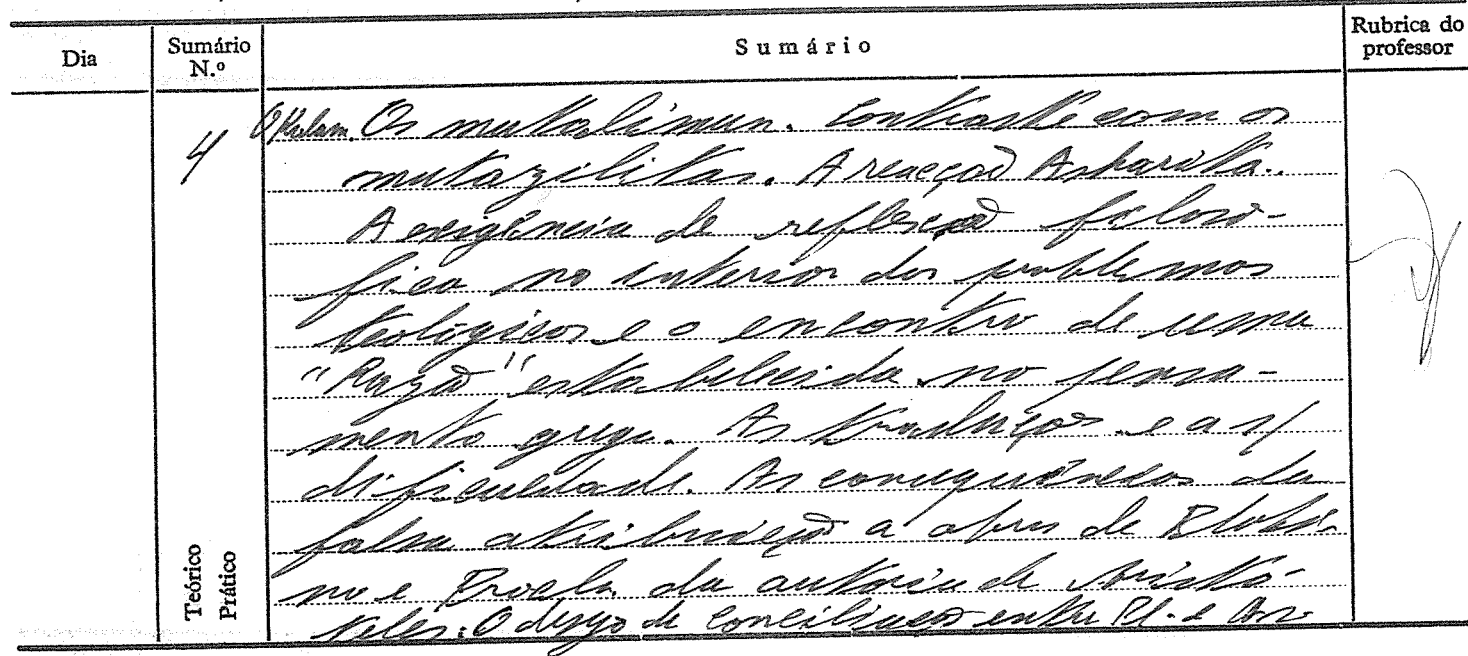 Dia
Sumário N.º
Sumário
Rubrica do professor
4
O Kalam. Os mutakalimun. Contraste com os
mutazilitas. A reacção Asharita.
A exigência de reflexão filosó-
fica no interior dos problemas
teológicos e o encontro de uma
"Razão" estabelecida no pensa-
mento grego. As traduções e a s/
dificuldade. As consequências da
falsa atribuição a obras de Ploti-
no e Proclo da autoria de Aristó-
teles: O desejo de conciliação entre Pl. e Ar.
Teórico
Prático